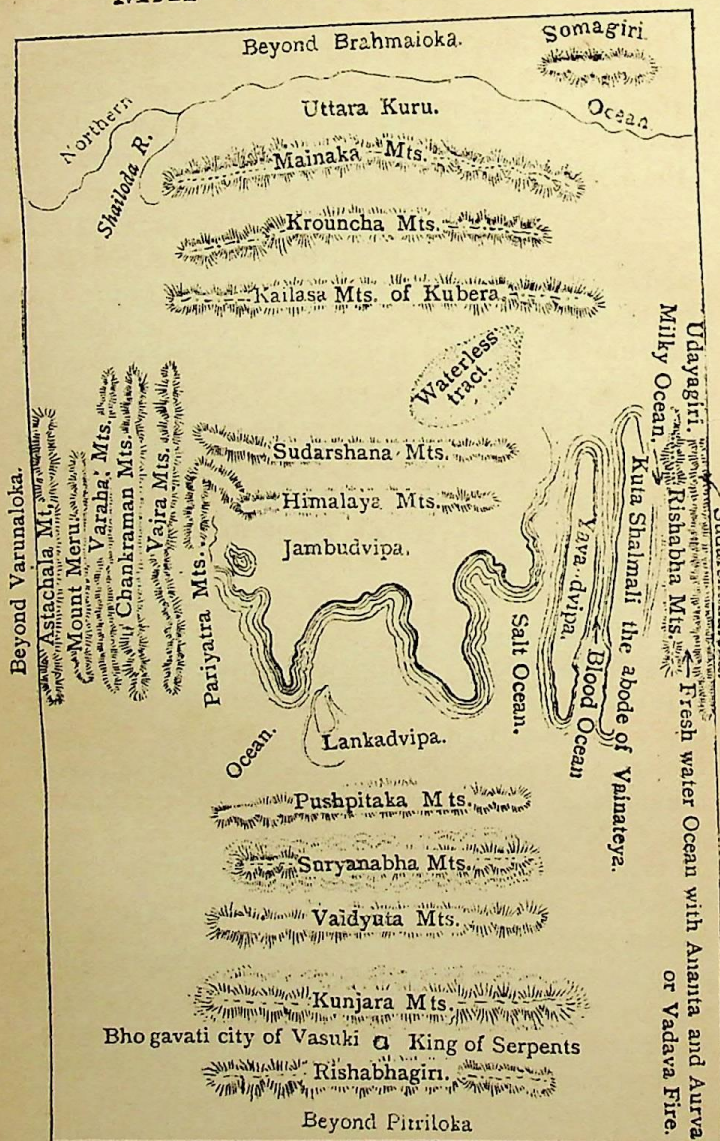 Beyond Brahmaioka.
Somagiri
Northern
Uttara Kuru.
Ocean
Shailoda R.
Mainaka Mts.
Krouncha Mts.
Kailasa Mts. of Kubera.
Waterless
tract.
Udayagiri.
Milky Ocean.
Sudarshana Mts.
Himalaya Mts.
Jambudvipa.
Beyond Varunaloka.
Astachala Mt.
Mount Meru.
Varaha. Mts.
Chankraman Mts.
Vajra Mts.
Pariyatra Mts.
Salt Ocean.
Yava dvipa.
Blood Ocean
Kuta Shalmali the abode of Vainateya.
Rishabha Mts.
Fresh water Ocean with Ananta and Aurva
or Vadava Fire.
Ocean.
Lankadvipa.
Pushpitaka Mts.
Suryanabha Mts.
Vaidyuta Mts.
Kunjara Mts.
Bhogavati city of Vasuki King of Serpents
Rishabhagiri.
Beyond Pitriloka